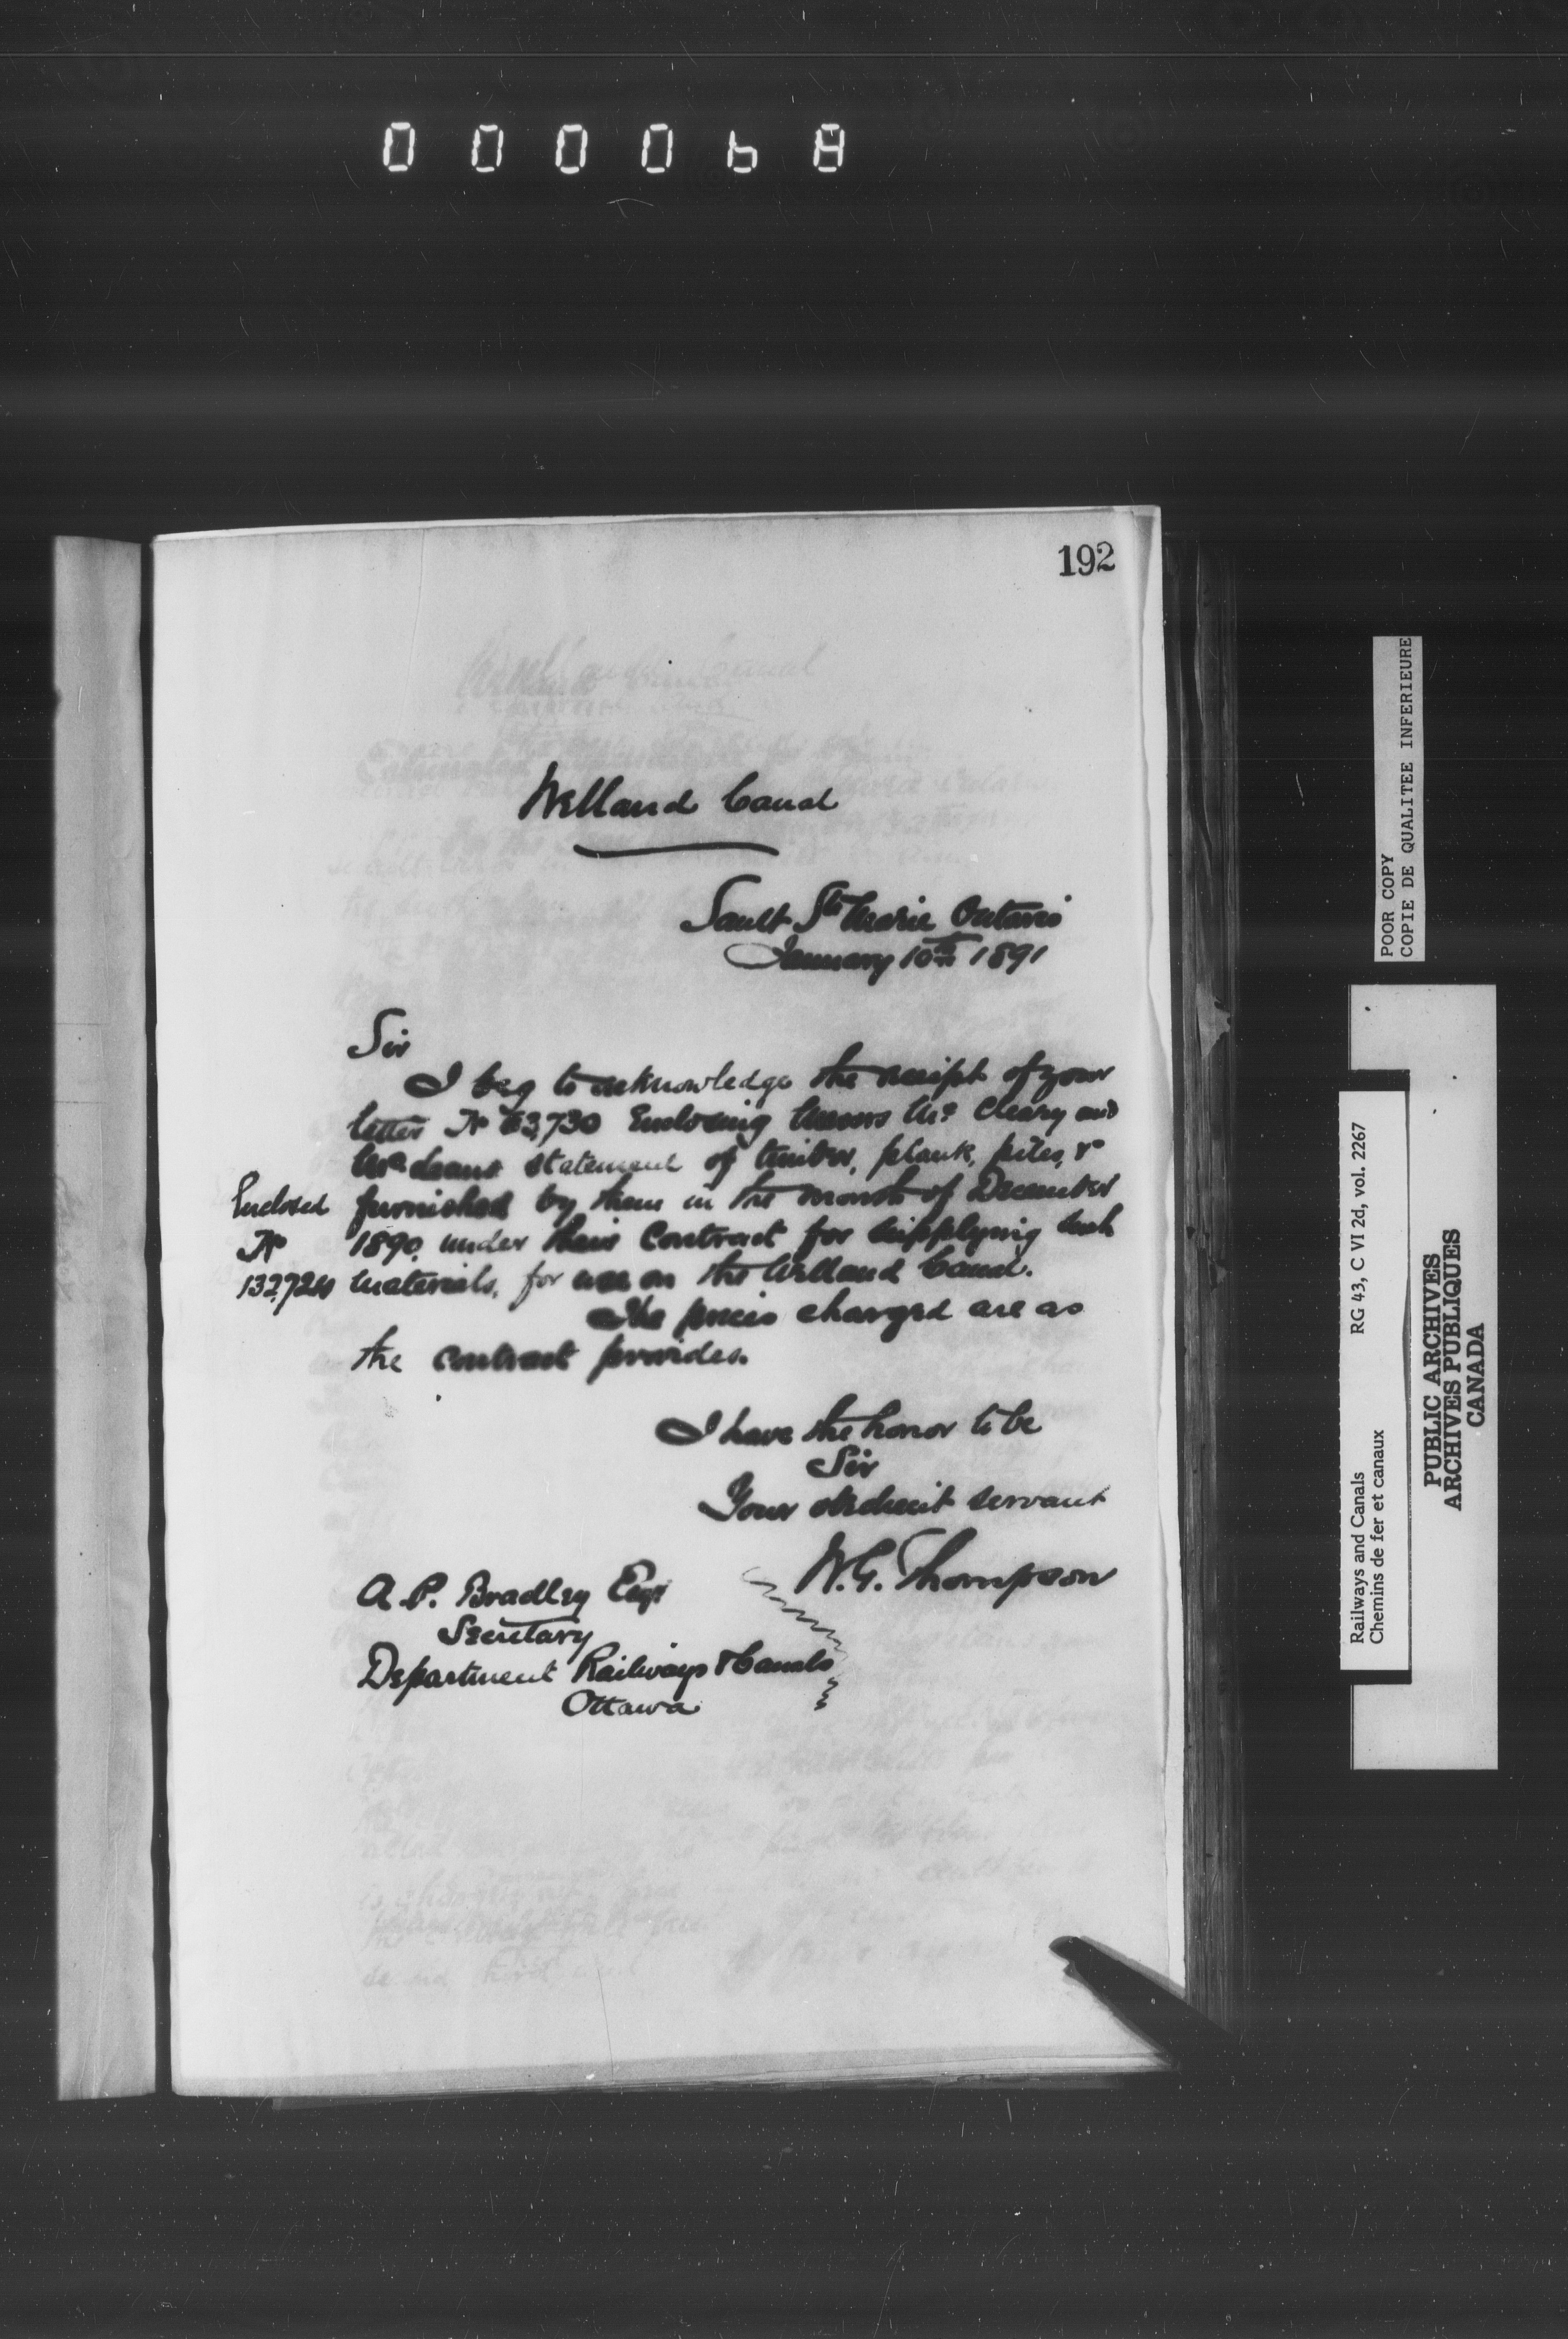 000068
192
Welland Canal
Sault Ste Marie Ontario
January 10th 1891
Sir
I beg to acknowledge the receipt of your
letter No 63,730 Enclosing Messrs Mc Cleary and
McLeans statement of timber, plank, piles, &c
Enclosed furnished by them in the month of December
No 1890, under their Contract for supplying such
132,724 materials, for use on the Welland Canal.
The prices charged are as
the contract provides.
I have the honor to be
Sir
Your obedient servant
W.G. Thompson
A.P. Bradley Esqr
Secretary
Department Railways & Canals
Ottawa
POOR COPY
COPIE DE QUALITEE INFERIEURE
Railways and Canals RG 43, C VI 2d, vol. 2267
Chemins de fer et canaux
PUBLIC ARCHIVES
ARCHIVES PUBLIQUES
CANADA